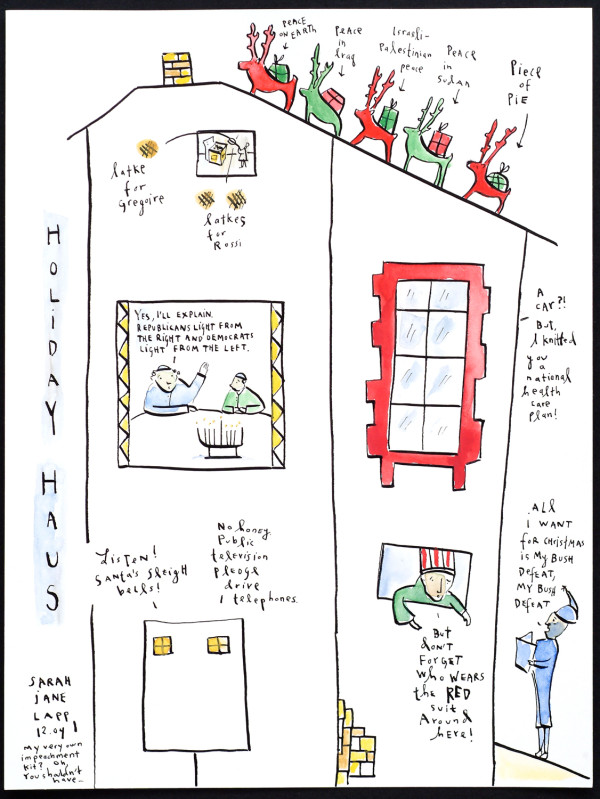 PEACE
ON EARTH
PEACE
in
Iraq
Israeli-
Palestinian
peace
PEACE
in
sudan
Piece
of
PiE
latke
for
Gregoire
latkes
for
Rossi
HOLIDAY HAUS
YES, I'LL EXPLAIN.
REPUBLICANS LIGHT FROM
THE RIGHT AND DEMOCRATS
LIGHT FROM THE LEFT.
A
CAR?!
But,
I knitted
you
a
national
health
care
plan!
Listen!
Santa's sleigh
bells!
No honey
Public
television
pledge
drive
telephones.
All
i WANT
for CHRISTMAS
is MY BUSH
DEFEAT,
MY BUSH
DEFEAT
BUT
don't
FORGET
Who WEARS
the RED
suit
Around
here!
SARAH
JANE
LAPP
12.04
My very own
impeachment
kit? Oh,
You shouldn't
have–